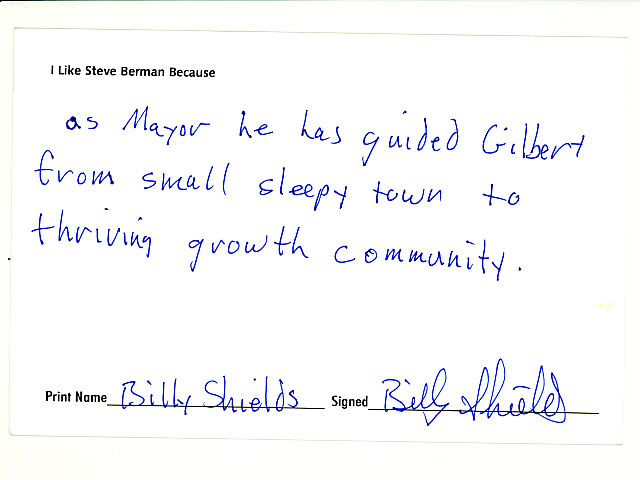 I Like Steve Berman Because
as Mayor he has guided Gilbert
from small sleepy town to
thriving growth community.
Print Name Billy Shields Signed Billy Shields